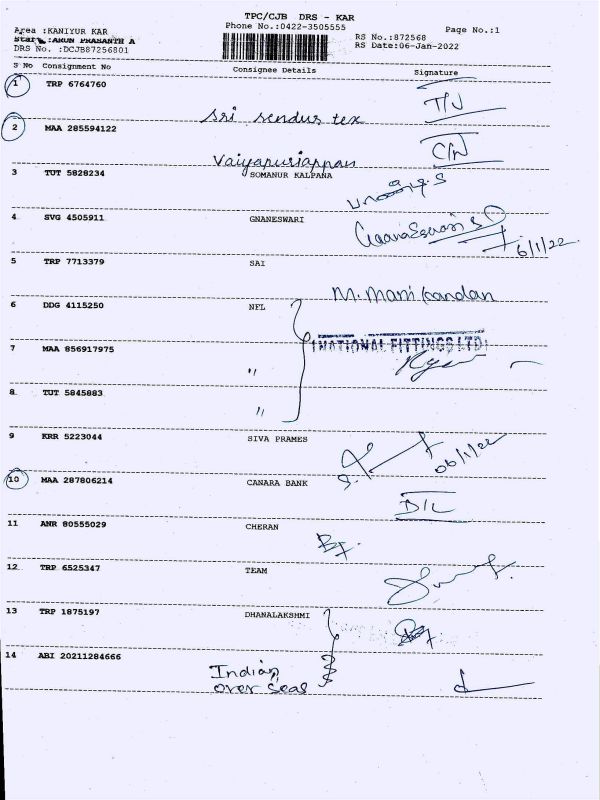 TPC/CJB DRS - KAR
Area :KANIYUR KAR Phone No.:0422-3505555 RS No.:872568 Page No.:1
Staff :ARUN PRASANTH A RS Date:06-Jan-2022
DRS No. :DCJB87256801
S No Consignment No Consignee Details Signature
1 TRP 6764760 T/J
Sri sendur tex
2 MAA 285594122 C/N
Vaiyapuriappan
3 TUT 5828234 SOMANUR KALPANA
4 SVG 4505911 GNANESWARI
6/1/22
5 TRP 7713379 SAI M. Manikandan
6 DDG 4115250 NFL
NATIONAL FITTINGS LTD
7 MAA 856917975 "
8 TUT 5845883 "
9 KRR 5223044 SIVA PRAMES 06/1/22
10 MAA 287806214 CANARA BANK D/L
11 ANR 80555029 CHERAN
12 TRP 6525347 TEAM
13 TRP 1875197 DHANALAKSHMI
14 ABI 20211284666 Indian
over seas